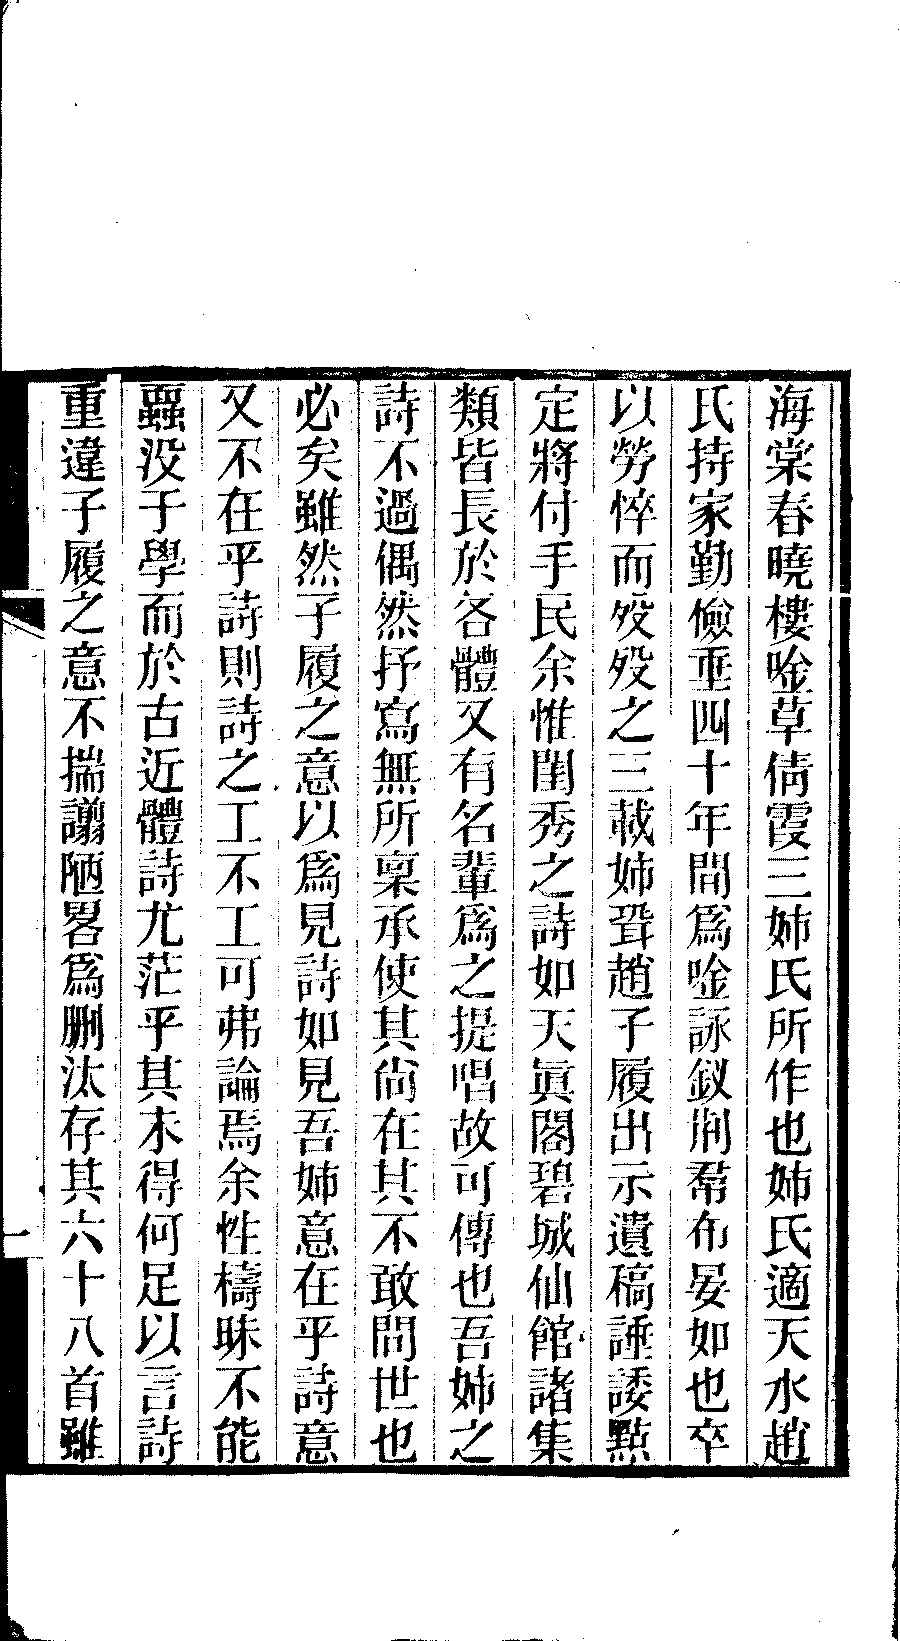 海棠春曉樓唫草倩霞三姊氏所作也姊氏適天水趙
氏持家勤儉垂四十年間爲唫詠釵荆羣布晏如也卒
以勞悴而歿歿之三載姊聓趙子履出示遺稿諈諉點
定將付手民余惟閨秀之詩如天眞閣碧城仙館諸集
類皆長於各體又有名輩爲之提唱故可傳也吾姊之
詩不過偶然抒寫無所稟承使其尙在其不敢問世也
必矣雖然子履之意以爲見詩如見吾姊意在乎詩意
又不在乎詩則詩之工不工可弗論焉余性檮昧不能
蠶没于學而於古近體詩尤茫乎其未得何足以言詩
重違子履之意不揣譾陋畧爲删汰存其六十八首雖
一